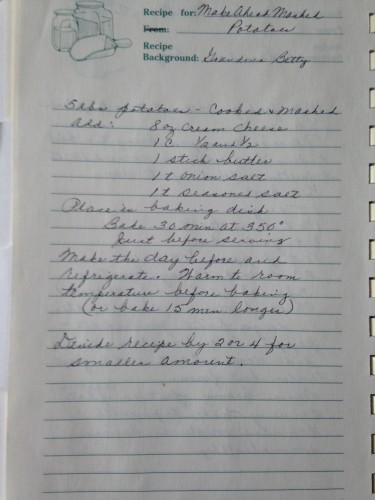 Recipe for: Make Ahead Mashed
From: Potatoes
Recipe
Background: Grandma Betty
5 lbs potatoes - Cooked & Mashed
add: 8 oz Cream Cheese
1 C 1/2 and 1/2
1 stick butter
1 t onion salt
1 t seasoned salt
Place in baking dish
Bake 30 min at 350°
Just before serving
Make the day before and
refrigerate. Warm to room
temperature before baking
(or bake 15 min longer)
Divide recipe by 2 or 4 for
smaller amount.